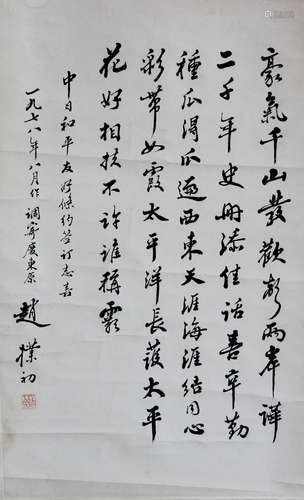 豪氣千山發歡聲兩岸譁
二千年史冊添佳話喜辛勤
種瓜得瓜西東天涯海涯結同心
彩帶如霞太平洋長護太平
花好相扶不許誰稱霸
中日和平友好條約簽订志喜
一九七八年八月作调寄慶東原
趙樸初